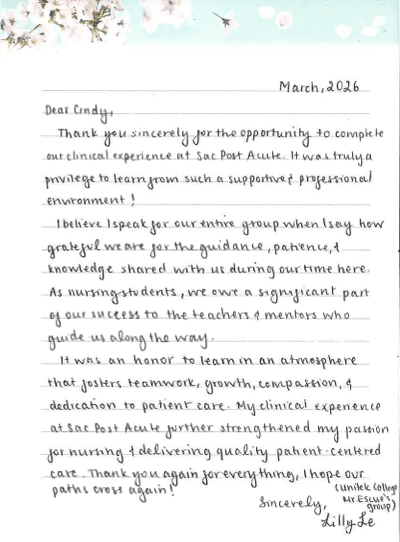 March, 2026
Dear Cindy,
Thank you sincerely for the opportunity to complete
our clinical experience at Sac Post Acute. It was truly a
privilege to learn from such a supportive & professional
environment!
I believe I speak for our entire group when I say how
grateful we are for the guidance, patience, &
knowledge shared with us during our time here.
As nursing students, we owe a significant part
of our success to the teachers & mentors who
guide us along the way.
It was an honor to learn in an atmosphere
that fosters teamwork, growth, compassion, &
dedication to patient care. My clinical experience
at Sac Post Acute further strengthened my passion
for nursing & delivering quality patient-centered
care. Thank you again for everything, I hope our
paths cross again!
Sincerely,
(Unitek College
Mr. Escue's
group)
Lilly Le